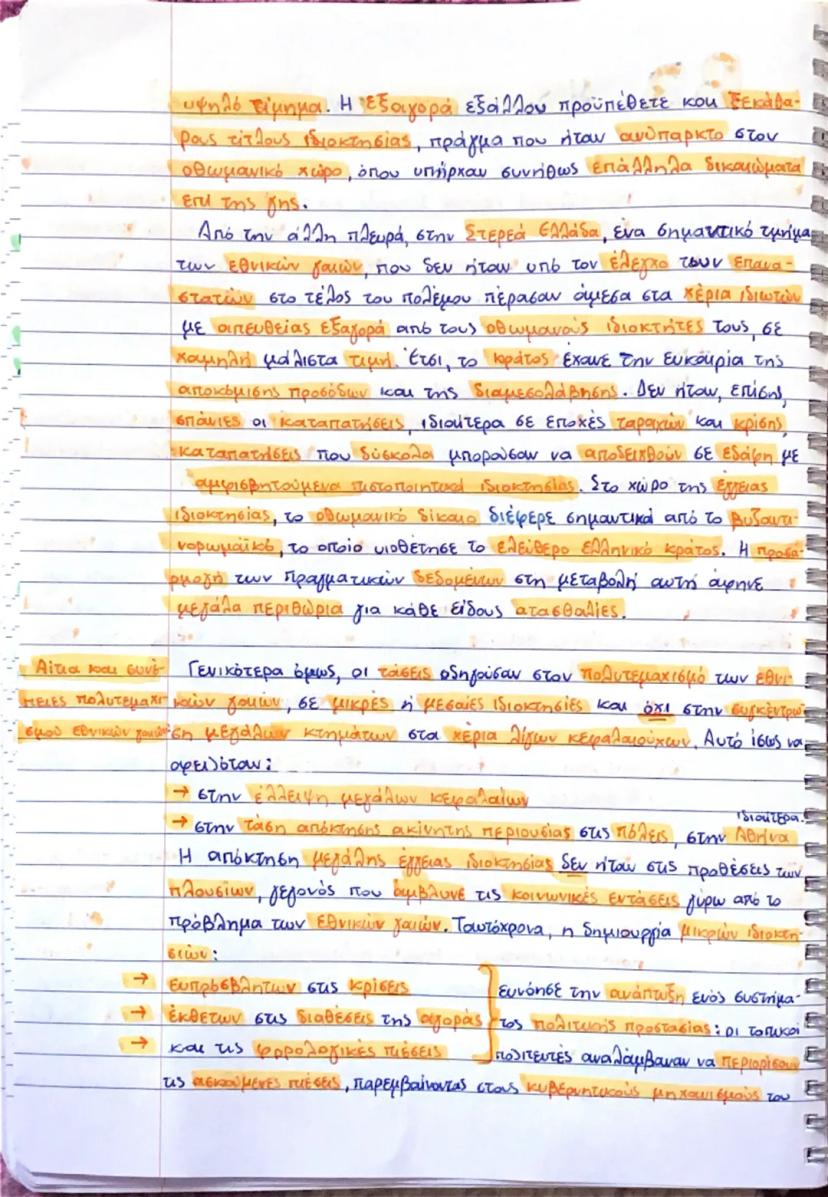 υψηλό τίμημα. Η εξαγορά εξάλλου προϋπέθετε και ξεκάθα-
ρους τίτλους ιδιοκτησίας, πράγμα που ήταν ανύπαρκτο στον
οθωμανικό χώρο, όπου υπήρχαν συνήθως επάλληλα δικαιώματα
επί της γης.
Από την άλλη πλευρά, στην Στερεά Ελλάδα, ένα σημαντικό τμήμα
των εθνικών γαιών, που δεν ήταν υπό τον έλεγχο των επανα-
στατών στο τέλος του πολέμου πέρασαν άμεσα στα χέρια ιδιωτών
με απευθείας εξαγορά από τους οθωμανούς ιδιοκτήτες τους, σε
χαμηλή μάλιστα τιμή. Έτσι, το κράτος έχανε την ευκαιρία της
αποκόμισης προσόδων και της διαμεσολάβησης. Δεν ήταν, επίσης,
σπάνιες οι καταπατήσεις, ιδιαίτερα σε εποχές ταραχών και κρίσης,
καταπατήσεις που δύσκολα μπορούσαν να αποδειχθούν σε εδάφη με
αμφισβητούμενα πιστοποιητικά ιδιοκτησίας. Στο χώρο της έγγειας
ιδιοκτησίας, το οθωμανικό δίκαιο διέφερε σημαντικά από το βυζαντι-
νορωμαϊκό, το οποίο υιοθέτησε το ελεύθερο ελληνικό κράτος. Η προσα-
ρμογή των πραγματικών δεδομένων στη μεταβολή αυτή άφηνε
μεγάλα περιθώρια για κάθε είδους ατασθαλίες.
Αίτια και συνέ-
πειες πολυτεμαχι-
σμού εθνικών γαιών
Γενικότερα όμως, οι τάσεις οδηγούσαν στον πολυτεμαχισμό των εθνι-
κών γαιών, σε μικρές ή μεσαίες ιδιοκτησίες και όχι στην συγκέντρω-
ση μεγάλων κτημάτων στα χέρια λίγων κεφαλαιούχων. Αυτό ίσως να
οφειλόταν:
→ στην έλλειψη μεγάλων κεφαλαίων
→ στην τάση απόκτησης ακίνητης περιουσίας στις πόλεις, ιδιαίτερα στην Αθήνα
Η απόκτηση μεγάλης έγγειας ιδιοκτησίας δεν ήταν στις προθέσεις των
πλουσίων, γεγονός που άμβλυνε τις κοινωνικές εντάσεις γύρω από το
πρόβλημα των εθνικών γαιών. Ταυτόχρονα, η δημιουργία μικρών ιδιοκτη-
σιών:
→ ευπρόσβλητων στις κρίσεις
→ έκθετων στις διαθέσεις της αγοράς
→ και τις φορολογικές πιέσεις
ευνόησε την ανάπτυξη ενός συστήμα-
τος πολιτικής προστασίας: οι τοπικοί
πολιτευτές αναλάμβαναν να περιορίσουν
τις ασκούμενες πιέσεις, παρεμβαίνοντας στους κυβερνητικούς μηχανισμούς του